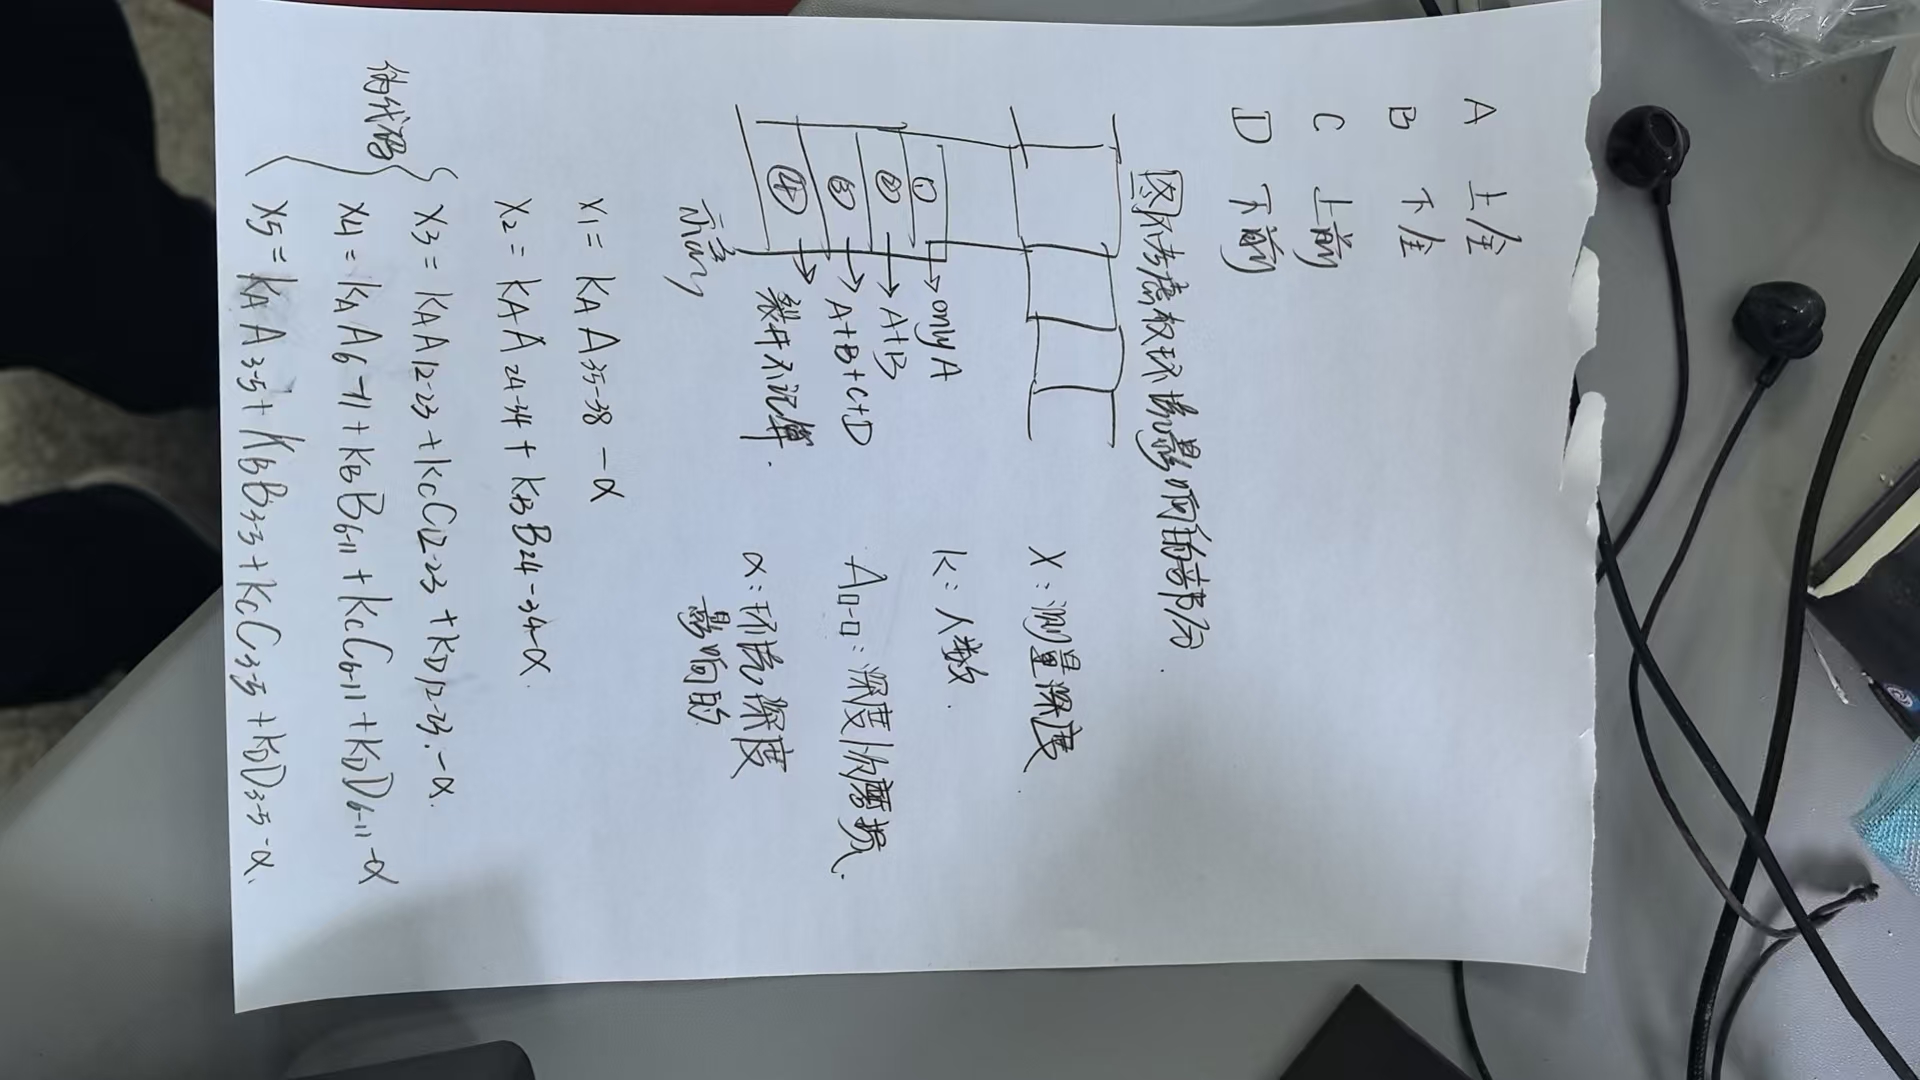 A 上全
B 下全
C 上前
D 下前
图不考虑仅环境影响的部分.
① → only A
② → A+B
③ → A+B+C+D
④ → 裂开不记算.
X: 测量深度.
K: 人数.
A□-□: 深度1次磨损.
α: 环境深度
影响的
X1= KA A35-38 -α
X2= KA A24-34 + KB B24-34-α.
伪代码
X3= KA A12-23 +KC C12-23 +KD 12-23.-α.
X4= KA A6-11 + KB B6-11 + KC C6-11 + KD D6-11 -α
X5= KA A3-5+ KB B3-5 + KC C3-5 +KD D3-5-α.